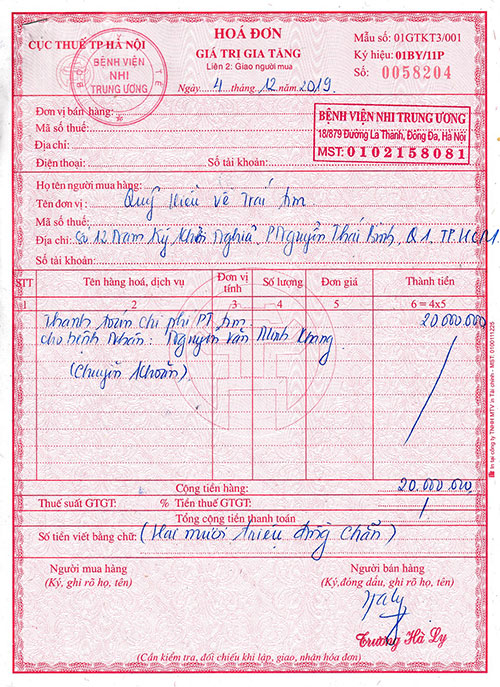 CỤC THUẾ TP HÀ NỘI
BỘ Y TẾ
BỆNH VIỆN
NHI
TRUNG ƯƠNG
HOÁ ĐƠN
GIÁ TRỊ GIA TĂNG
Liên 2: Giao người mua
Ngày 4 tháng 12 năm 2019
Mẫu số: 01GTKT3/001
Ký hiệu: 01BY/11P
Số: 0058204
Đơn vị bán hàng:
Mã số thuế:
Địa chỉ:
Điện thoại: Số tài khoản:
BỆNH VIỆN NHI TRUNG ƯƠNG
18/879 Đường La Thành, Đống Đa, Hà Nội
MST: 0102158081
Họ tên người mua hàng:
Tên đơn vị: Quỹ Hiểu về Trái Tim
Mã số thuế:
Địa chỉ: Số 12 Nam Kỳ Khởi Nghĩa, P Nguyễn Thái Bình, Q1. TP.HCM
Số tài khoản:
STT Tên hàng hoá, dịch vụ Đơn vị tính Số lượng Đơn giá Thành tiền
1 2 3 4 5 6 = 4x5
Thanh toán chi phí PT tim 20.000.000
cho bệnh nhân: Nguyễn Văn Minh Khang
(Chuyển khoản)
Cộng tiền hàng: 20.000.000
Thuế suất GTGT: % Tiền thuế GTGT: /
Tổng cộng tiền thanh toán
Số tiền viết bằng chữ: (Hai mươi triệu đồng chẵn)
Người mua hàng Người bán hàng
(Ký, ghi rõ họ, tên) (Ký,đóng dấu, ghi rõ họ, tên)
Trương Hà Ly
(Cần kiểm tra, đối chiếu khi lập, giao, nhận hóa đơn)
In tại công ty TNHH MTV in Tài chính - MST: 0100111225